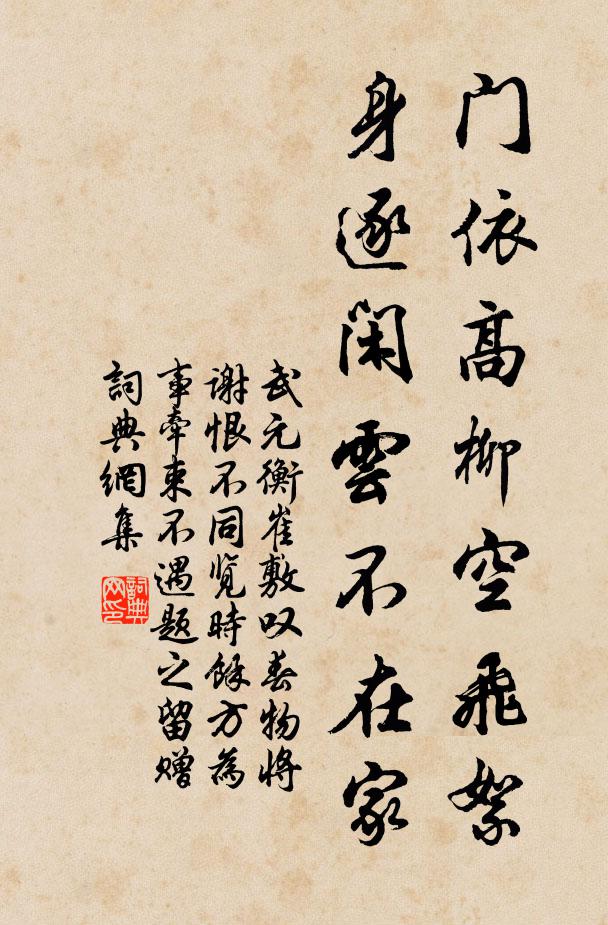 门依高柳空飛絮
身逐闲雲不在家
武元衡崔敷叹春物將
谢恨不同览時餘方為
事牽束不遇题之留赠
詞典網集
詞典
网印